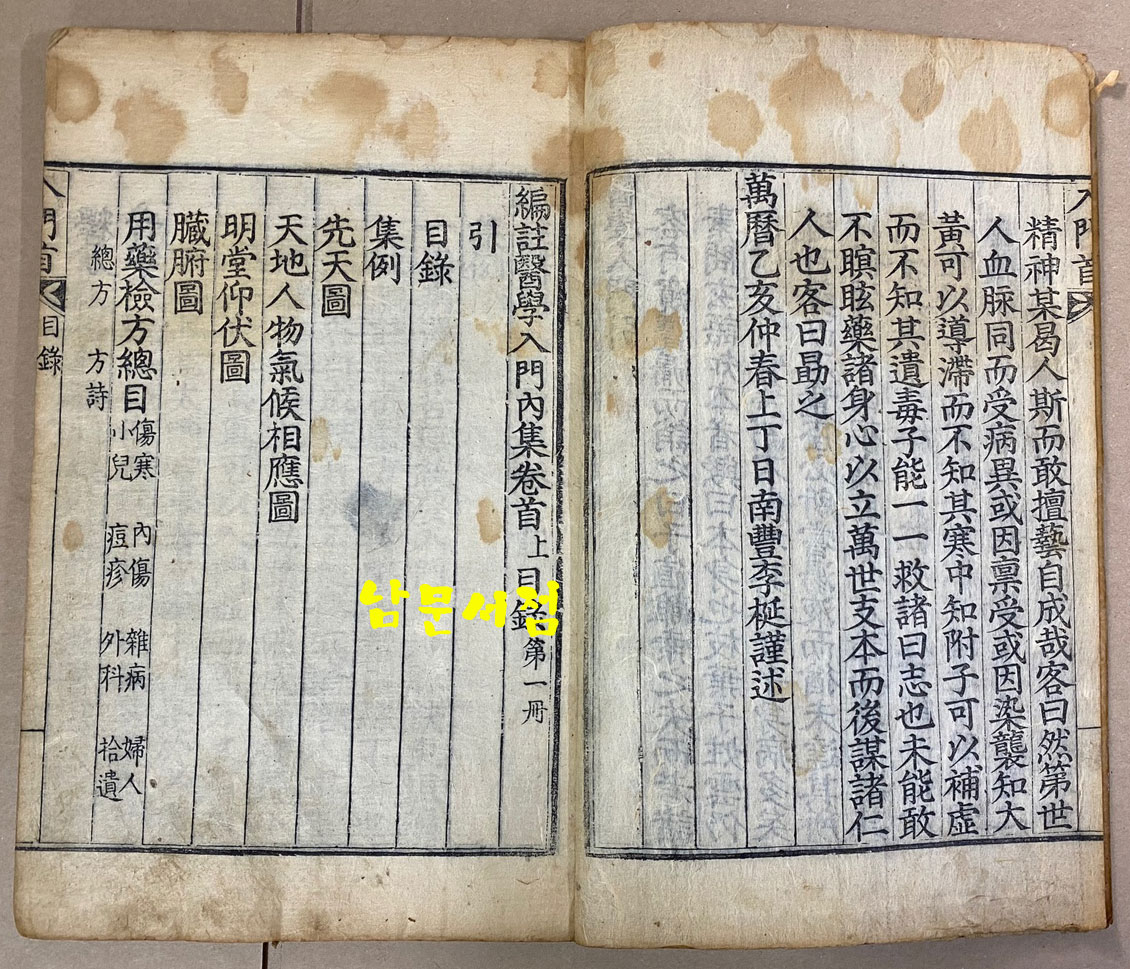 入門首
精神某曷人斯而敢擅藝自成哉客曰然第世
人血脉同而受病異或因禀受或因染襲知大
黃可以導滯而不知其寒中知附子可以補虛
而不知其遺毒子能一一救諸曰志也未能敢
不瞑眩藥諸身心以立萬世支本而後謀諸仁
人也客曰勗之
萬曆乙亥仲春上丁日南豐李梴謹述
編註醫學入門內集卷首上目錄第一冊
引
目錄
集例
先天圖
天地人物氣候相應圖
明堂仰伏圖
臟腑圖
用藥檢方總目 傷寒 內傷 雜病 婦人
小兒 痘疹 外科 拾遺
總方 方詩
入門首 目錄
남문서점